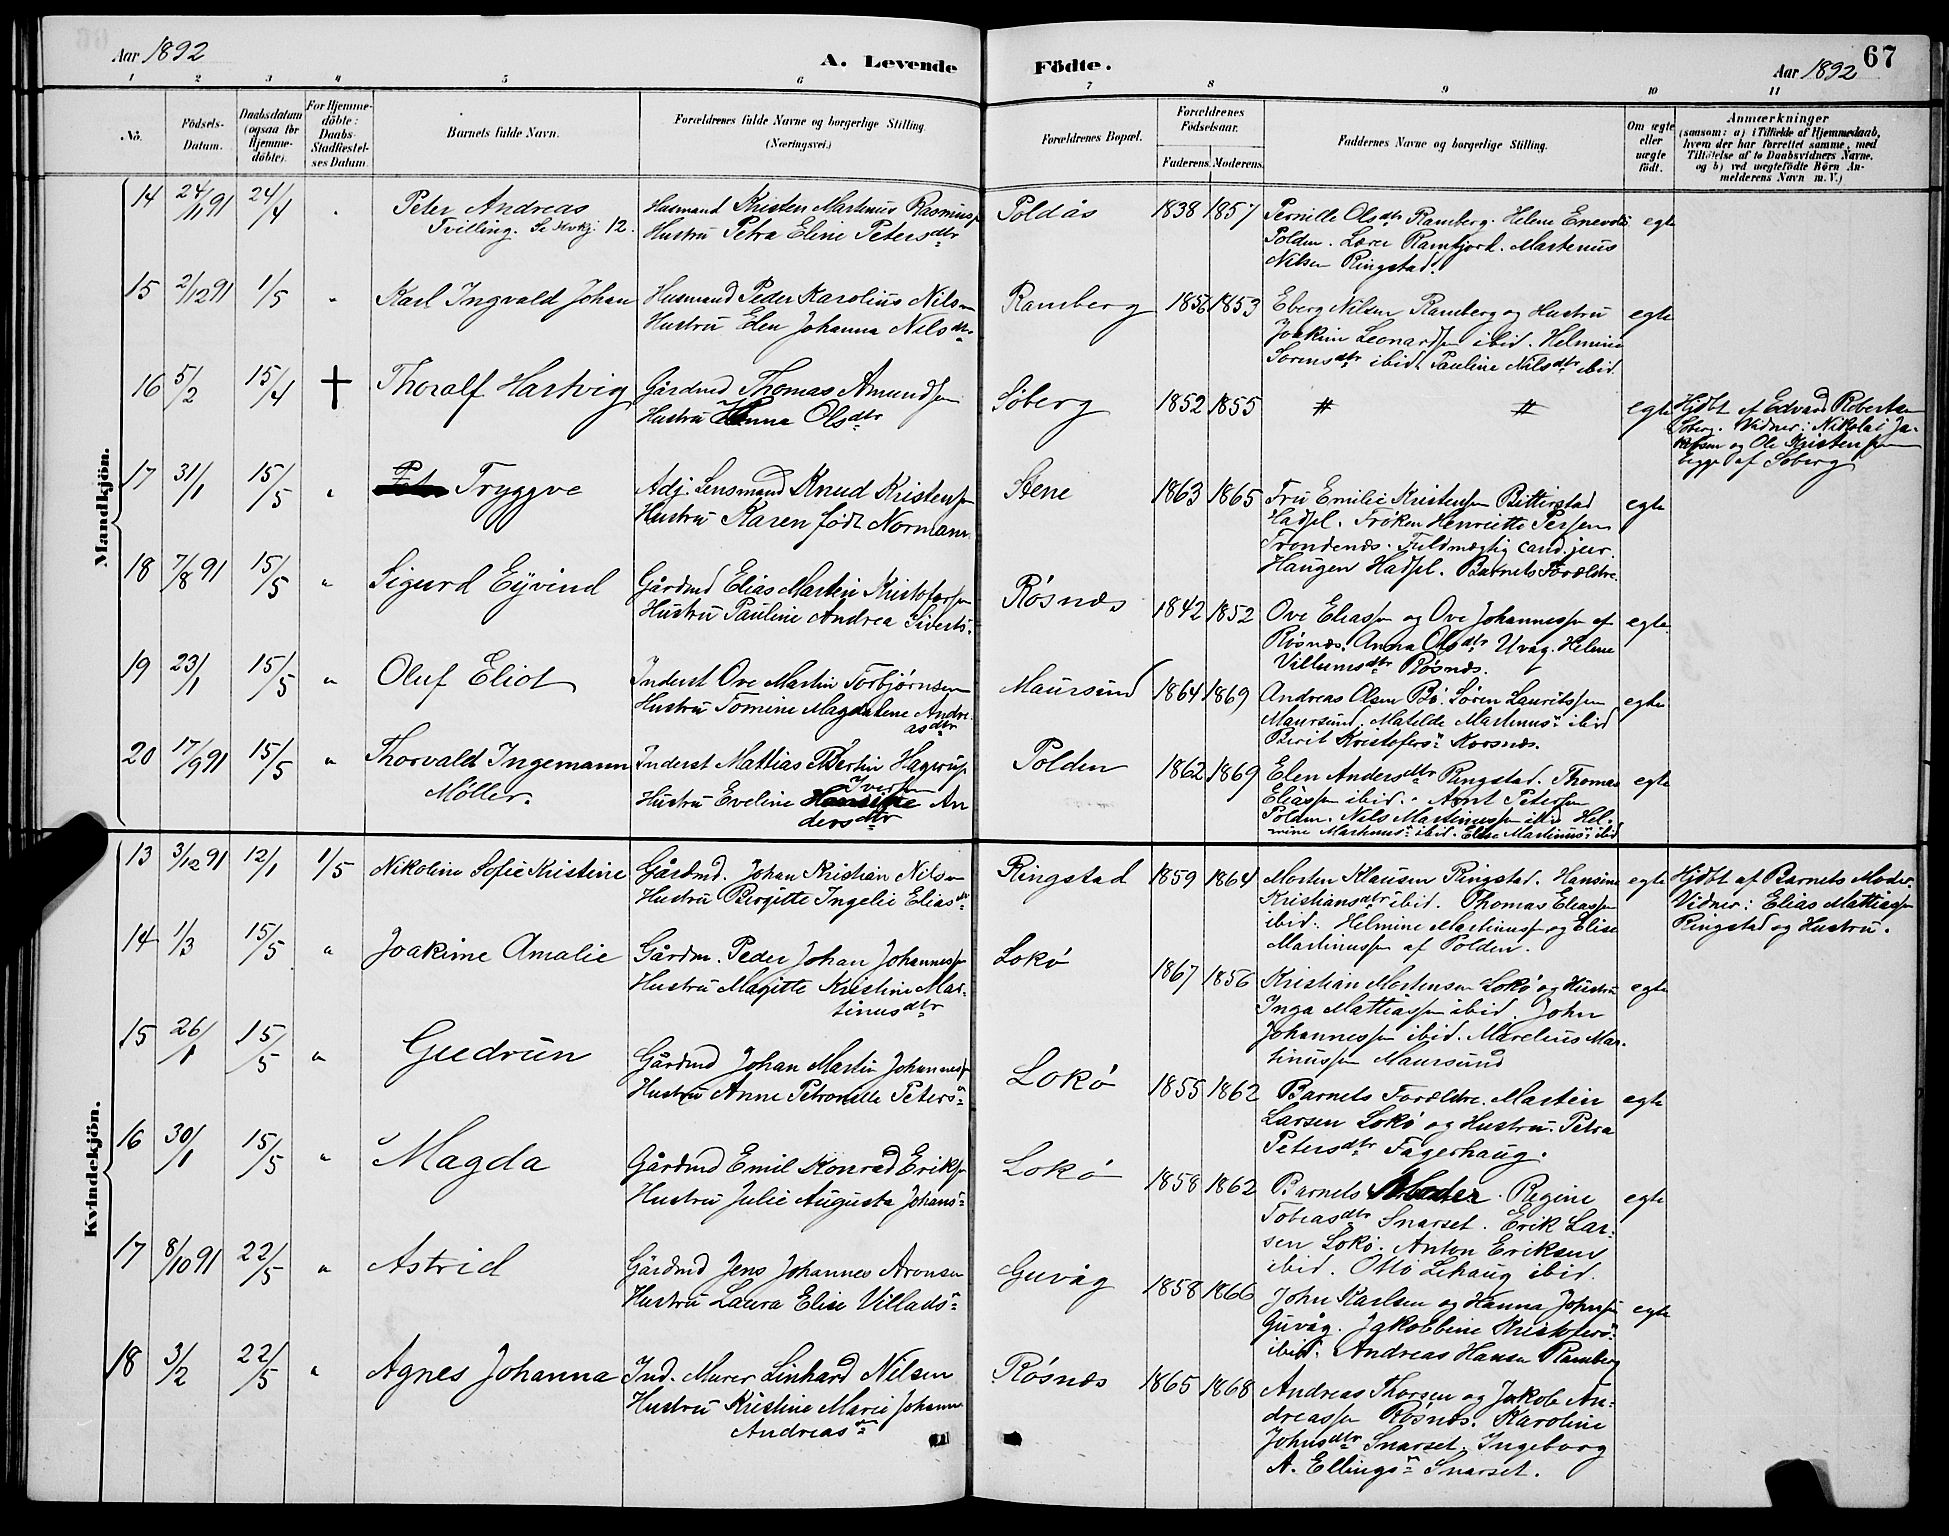 Aar 1892
A. Levende Födte.
Aar 1892
67
1 2 3 4 5 6 7 8 9 10 11
No.
Födsels-Datum.
Daabsdatum (ogsaa for Hjemme-döbte).
For Hjemme-döbte: Daabs-Stadfæstel-ses Datum.
Barnets fulde Navn.
Forældrenes fulde Navne og borgerlige Stilling. (Næringsvei.)
Forældrenes Bopæl.
Forældrenes Födselsaar.
Faderens. Moderens.
Faddernes Navne og borgerlige Stilling.
Om ægte eller uægte födt.
Anmærkninger
(saasom: a) i Tilfælde af Hjemmedaab, hvem der har forrettet samme, med Tilföielse af to Daabsvidners Navne, og b) ved uægtefödte Börn An-melderens Navn m. V.)
Mandkjön.
14 24/11 91 24/4 " Peter Andreas
Tvilling. Se Kvkj. 12.
Husmand Kristen Martinus Rasmuss.
Hustru Petra Elene Petersdtr
Poldås 1838 1857
Pernille Olsdtr Ramberg. Helene Enevolds
Polden. Lærer Ramfjord. Martenus
Nilsen Ringstad.
egte
15 2/12 91 1/5 " Karl Ingvald Johan
Husmand Peder Karolius Nilsen
Hustru Elen Johanna Nilsdtr
Ramberg 1856 1853
Eberg Nilsen Ramberg og Hustru
Joakim Leonardsen ibid. Helmine
Sorensdtr ibid. Pauline Nilsdtr ibid.
egte
16 5/2 15/4 † Thoralf Hartvig
Gårdmd Thomas Amundsen
Hustru Hanna Olsdtr
Soberg 1852 1855 # # egte
Hjdbt af Edvard Robertsen
Soberg. Vidner: Nikolai Ja-
kobsen og Ole Kristensen
begge af Soberg
17 31/1 15/5 " Tryggve
Adj. Lensmand Knud Kristensen
Hustru Karen født Normann
Stene 1863 1865
Fru Emilie Kristensen Bitterstad
Hadsel. Frøken Henriette Persen
Trondenæs. Fuldmægtig cand. jur.
Haugen Hadsel. Barnets Forældre.
egte
18 7/8 91 15/5 " Sigurd Eyvind
Gårdmd Elias Martin Kristofersen
Hustru Pauline Andrea Siverts.
Røsnæs 1842 1852
Ove Eliassen og Ove Johannessen af
Røsnæs. Anna Olsdtr Uvåg. Helene
Villumsdtr Røsnæs.
egte
19 23/1 15/5 " Oluf Eliot
Inderst Ove Martin Torbjørnsen
Hustru Tomine Magdalene Andre-
asdtr
Maursund 1864 1869
Andreas Olsen Bø. Søren Lauritssen
Maursund. Matilde Martinus. ibid
Berit Kristofers. Korsnæs.
egte
20 17/9 91 15/5 " Thorvald Ingemann
Møller.
Inderst Mattias Bertin Hagerup
Iversen
Hustru Eveline An
dersdtr
Polden 1862 1869
Elen Andersdtr Ringstad. Thomas
Eliassen ibid. Arnt Petersen
Polden. Nils Martinussen ibid. Hel-
mine Martinus. ibid. Elise Martinus. ibid
egte
Kvindekjön.
13 3/12 91 12/1 1/5 Nikoline Sofie Kristine
Gårdmd. Johan Kristian Nilsen
Hustru Birgitte Ingelie Eliasdtr
Ringstad 1859 1864
Morten Klausen Ringstad. Hansine
Kristiansdtr ibid. Thomas Eliassen
ibid. Helmine Martinuss. og Elise
Martinussen af Polden.
egte
Hjdbt af Barnets Moder.
Vidner: Elias Mattiassen
Ringstad og Hustru.
14 1/3 15/5 " Joakime Amalie
Gårdm. Peder Johan Johannessen
Hustru Magitte Kristine Mar-
tinusdtr
Lokø 1867 1856
Kristian Mortensen Lokø og Hustru
Inga Mattiassen ibid. John
Johannessen ibid. Marelius Mar-
tinussen Maursund
egte
15 26/1 15/5 " Gudrun
Gårdmd Johan Martin Johannes.
Hustru Anne Petronelle Peters.
Lokø 1855 1862
Barnets Forældre. Martin
Larsen Lokø og Hustru. Petra
Petersdtr Fagerhaug.
egte
16 30/1 15/5 " Magda
Gårdmd Emil Konrad Eriks.
Hustru Julie Augusta Johans.
Lokø 1858 1862
Barnets Moder. Regine
Tobiasdtr Snarset. Erik Lar-
sen Lokø. Anton Eriksen
ibid. Otto Lehaug ibid.
egte
17 8/10 91 22/5 " Astrid
Gårdmd Jens Johannes Aronsen
Hustru Laura Elise Villads.
Guvåg 1858 1866
John Karlsen og Hanna Johnsen
Guvåg. Jakobbine Kristofers.
ibid. Andreas Hansen Ramberg
egte
18 3/2 22/5 " Agnes Johanna
Ind. Murer Linhard Nilsen
Hustru Kristine Marie Johanne
Andreas.
Røsnæs 1865 1868
Andreas Thorsen og Jakob An-
dreassen Røsnæs. Karoline
Johnsdtr Snarset. Ingeborg
A. Ellings. Snarset.